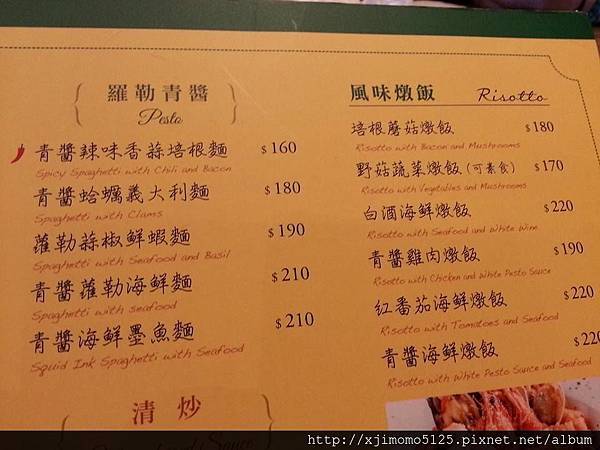 羅勒青醬
Pesto
青醬辣味香蒜培根麵 $160
Spicy Spaghetti with Chili and Bacon
青醬蛤蠣義大利麵 $180
Spaghetti with Clams
蘿勒蒜椒鮮蝦麵 $190
Spaghetti with Seafood and Basil
青醬蘿勒海鮮麵 $210
Spaghetti with seafood
青醬海鮮墨魚麵 $210
Squid Ink Spaghetti with Seafood
清炒
風味燉飯 Risotto
培根蘑菇燉飯 $180
Risotto with Bacon and Mushrooms
野菇蔬菜燉飯(可素食) $170
Risotto with Vegetables and Mushrooms
白酒海鮮燉飯 $220
Risotto with Seafood and White Wine
青醬雞肉燉飯 $190
Risotto with Chicken and White Pesto Sauce
紅番茄海鮮燉飯 $220
Risotto with Tomatoes and Seafood
青醬海鮮燉飯 $220
Risotto with White Pesto Sauce and Seafood
http://xjimomo5125.pixnet.net/album